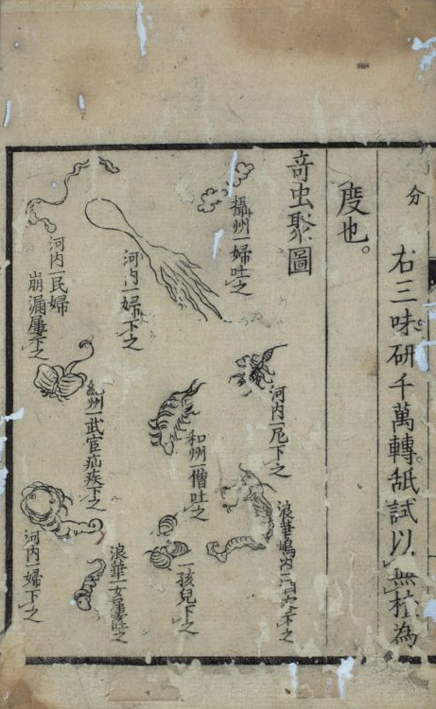 分
右三味研千萬轉舐試以無粒為
度也。
奇虫聚圖
攝州一婦吐之
河内一婦下之
河内一民婦
崩漏屢下之
河内一尼下之
和州一僧吐之
紀州一武官疝疾下之
浪華嶋内
一孩兒下之
浪華一女屢吐之
河内一婦下之